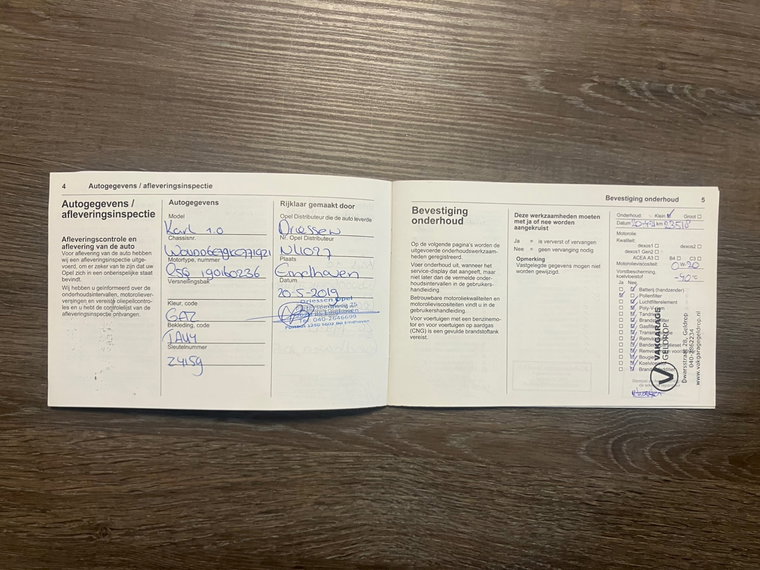 4 Autogegevens / afleveringsinspectie
Autogegevens /
afleveringsinspectie
Afleveringscontrole en
aflevering van de auto
Voor aflevering van de auto hebben
wij een afleveringsinspectie uitge-
voerd, om er zeker van te zijn dat uw
Opel zich in een onberispelijke staat
bevindt.
Wij hebben u geïnformeerd over de
onderhoudsintervallen, motoroliever-
versing en vereiste oliepeilcontro-
les en u hebt de controlelijst van de
afleveringsinspectie ontvangen.
Autogegevens
Model
Karl 1.0
Chassisnr.
Motortype, nummer
Versnellingsbak
Kleur, code
GAZ
Bekleding, code
Sleutelnummer
Rijklaar gemaakt door
Opel Distributeur die de auto leverde
Driessen
Nr. Opel Distributeur
NL1027
Plaats
Eindhoven
Datum
20-5-2019
Driessen Opel
040-2646699
Bevestiging onderhoud 5
Bevestiging
onderhoud
Op de volgende pagina's worden de
uitgevoerde onderhoudswerkzaam-
heden geregistreerd.
Voer onderhoud uit, wanneer het
service-display dat aangeeft, maar
niet later dan de vermelde onder-
houdsintervallen in de gebruikers-
handleiding.
Betrouwbare motoroliekwaliteiten en
motorolieviscositeiten vindt u in de
gebruikershandleiding.
Voor voertuigen met een benzinemo-
tor en voor voertuigen op aardgas
(CNG) is een gevulde brandstoftank
vereist.
Deze werkzaamheden moeten
met ja of nee worden
aangekruist
Ja = is ververst of vervangen
Nee = geen vervanging nodig
Opmerking
Vastgelegde gegevens mogen niet
worden gewijzigd.
Onderhoud: Klein Groot
Datum km
Motorolie
Kwaliteit:
dexos1 dexos2
dexos1 Gen2
ACEA A3 B4 C3
Motorolieviscositeit: 0w20
Vorstbescherming,
koelvloeistof
Ja Nee
Batterij (handzender)
Pollenfilter
Luchtfilterelement
VAKGARAGE
GELDROP
Dwarsstraat 28, Geldrop
040-2862234
www.vakgaragegeldrop.nl